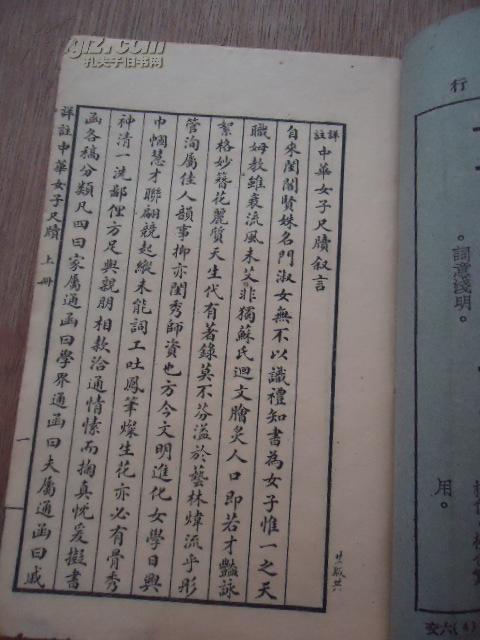 詳註中華女子尺牘叙言
自來閨閣賢姝名門淑女無不以識禮知書為女子惟一之天
職姆教雖衰流風未艾非獨蘇氏迴文膾炙人口即若才豔詠
絮格妙簪花麗質天生代有著錄莫不芬溢於藝林煒流乎彤
管洵屬佳人韻事抑亦閨秀師資也方今文明進化女學日興
巾幗慧才聯翩競起縱未能詞工吐鳳筆燦生花亦必有骨秀
神清一洗鄙俚方足與親朋相款洽通情愫而掬真忱爰擬書
函各稿分類凡四曰家屬通函曰學界通函曰夫屬通函曰戚
詳註中華女子尺牘 上冊
一
行
。詞意淺明。
用。
孔夫子旧书网